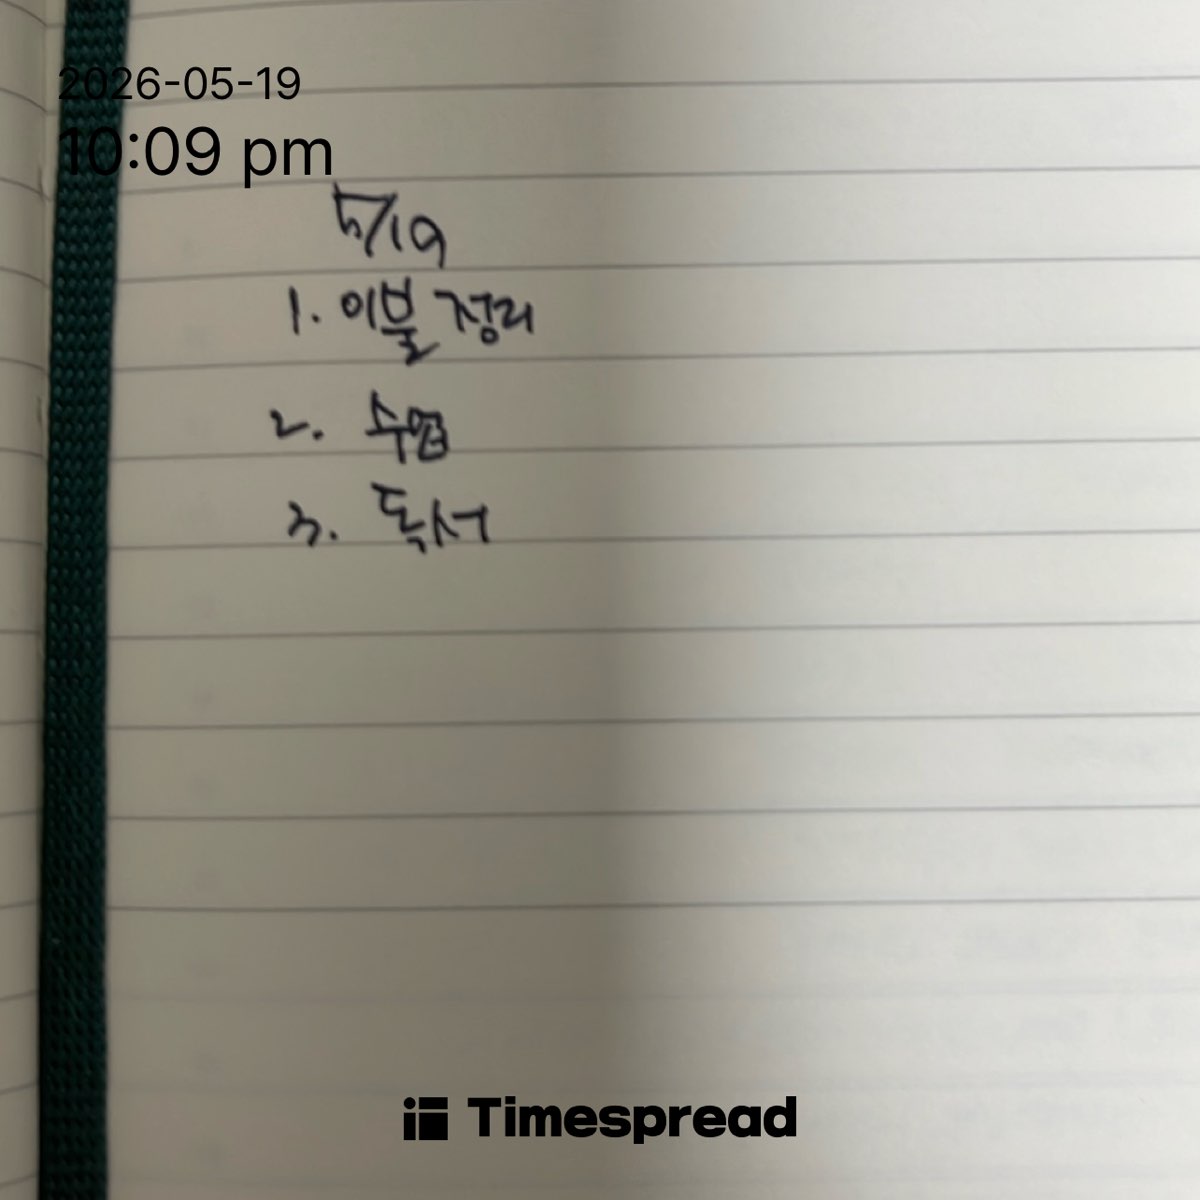 2026-05-19
10:09 pm
5/19
1. 이불 정리
2. 수업
3. 독서
Timespread